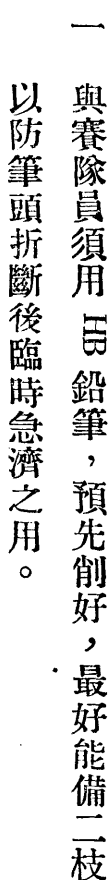 一 與賽隊員須用HB鉛筆，預先削好，最好能備二枝
以防筆頭折斷後臨時急濟之用。